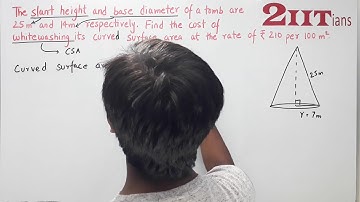 The slant height and base diameter of a tomb are
25m and 14m respectively. Find the cost of
whitewashing its curved surface area at the rate of ₹ 210 per 100 m²
CSA
Curved surface
2IITians
25m
r = 7m